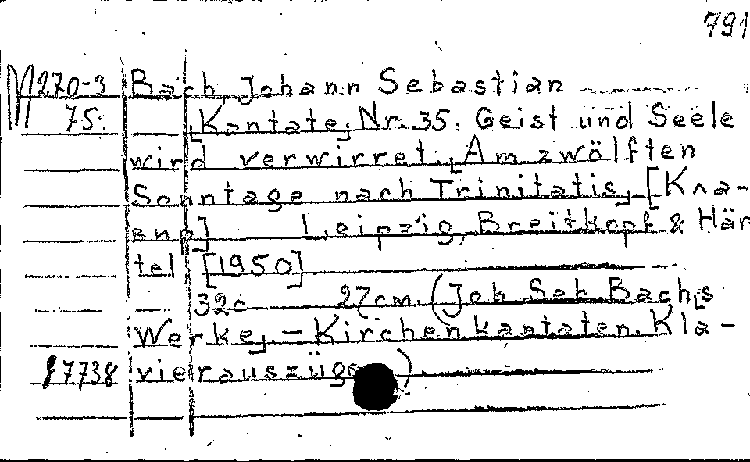 791
M270-3 Bach Johann Sebastian
75. Kantate, Nr. 35. Geist und Seele
wird verwirret. Am zwölften
Sonntage nach Trinitatis. [Kла-
вир] Leipzig, Breitkopf & Här
tel [1950]
32с 27cm. (Joh Seb Bachs
Werke, - Kirchenkantaten. Kla-
ƒ7738 vierauszüge)